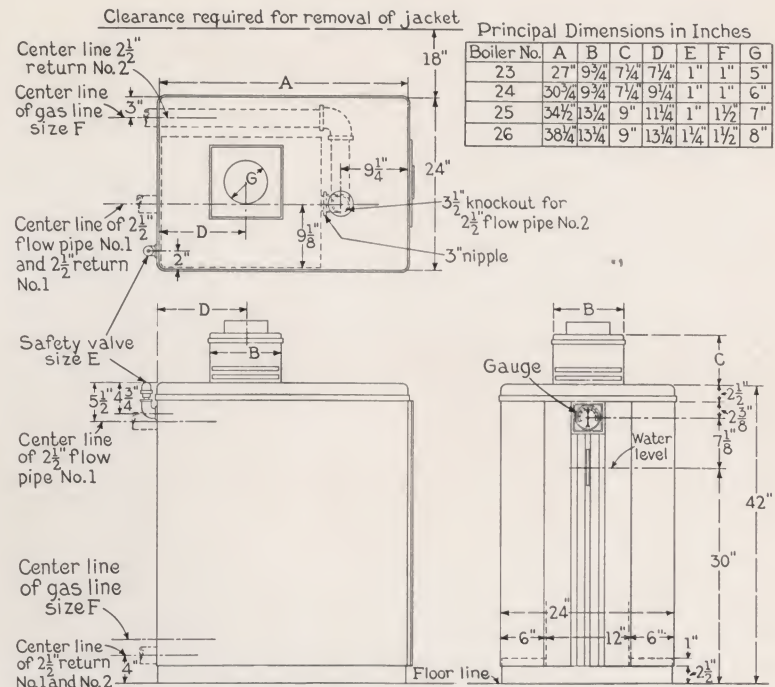 Clearance required for removal of jacket
Principal Dimensions in Inches
Boiler No. A B C D E F G
23 27" 9¾" 7¼" 7¼" 1" 1" 5"
24 30¾" 9¾" 7¼" 9¼" 1" 1" 6"
25 34½" 13¼" 9" 11¼" 1" 1½" 7"
26 38¼" 13¼" 9" 13¼" 1¼" 1½" 8"
Center line 2½"
return No.2
Center line
of gas line
size F
3"
A
18"
24"
G
9¼"
D
9⅛"
2"
3½" knockout for
2½" flow pipe No.2
3" nipple
Center line of 2½"
flow pipe No.1
and 2½" return
No.1
Safety valve
size E
D
B
5½"
4¾"
Center line
of 2½" flow
pipe No.1
Center line
of gas line
size F
Center line
of 2½" return
No.1 and No.2
4"
Floor line
B
C
Gauge
2½"
2⅜"
7⅛"
Water
level
42"
30"
24"
6"
12"
6"
1"
2½"